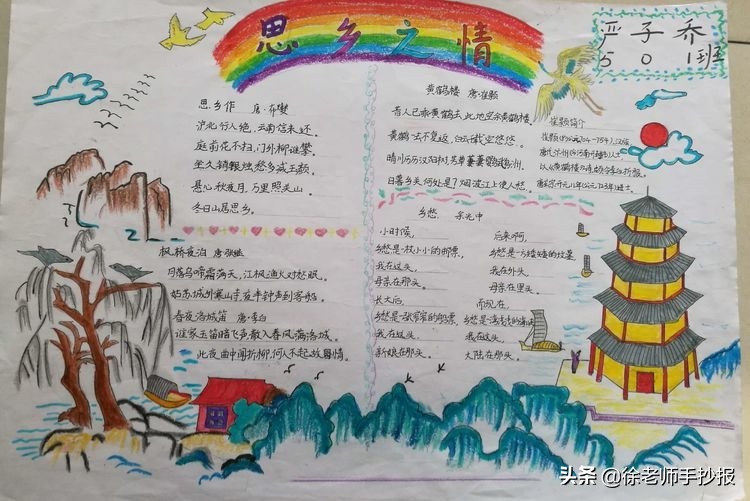 思乡之情
严子乔
501班
思乡作 唐·
沪北行人绝，云南信未还。
庭前花不扫，门外柳谁攀。
坐久销银烛，愁多减玉颜。
悬心秋夜月，万里照关山。
冬日山居思乡。
枫桥夜泊 唐·张继
月落乌啼霜满天，江枫渔火对愁眠。
姑苏城外寒山寺，夜半钟声到客船。
春夜洛城笛 唐·李白
谁家玉笛暗飞声，散入春风满洛城。
此夜曲中闻折柳，何人不起故园情。
黄鹤楼 唐·崔颢
昔人已乘黄鹤去，此地空余黄鹤楼。
黄鹤一去不复返，白云千载空悠悠。
晴川历历汉阳树，芳草萋萋鹦鹉洲。
日暮乡关何处是？烟波江上使人愁。
崔颢简介
崔颢(公元704－754)，汉族
唐代汴州
乡愁 余光中
小时候，
乡愁是一枚小小的邮票，
我在这头，
母亲在那头。
长大后，
乡愁是一张窄窄的船票，
我在这头，
新娘在那头。
后来啊，
乡愁是一方矮矮的坟墓
我在外头，
母亲在里头
而现在，
乡愁是一湾浅浅的海峡
我在这头，
大陆在那头。
头条 @徐老师手抄报